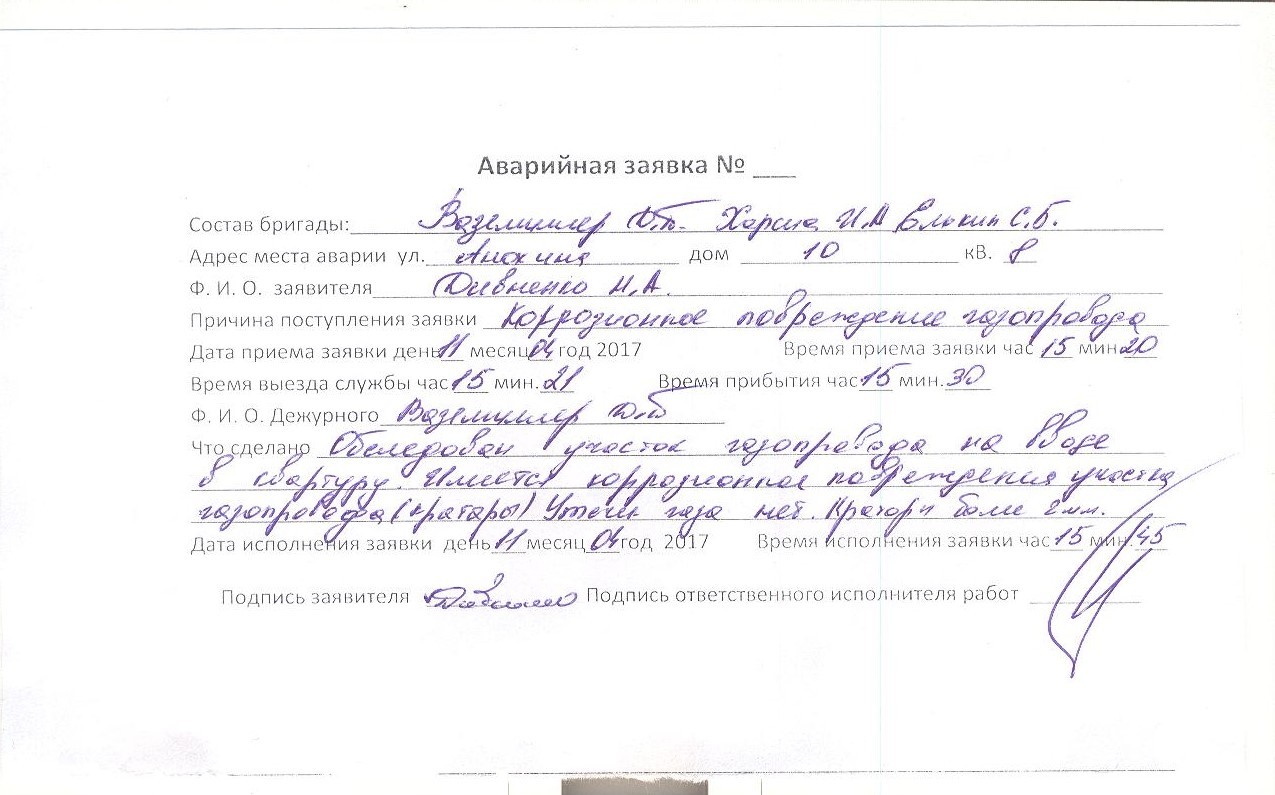 Аварийная заявка № ___
Состав бригады: Ваземиллер Д.Б. Харсид И.А Елькин С.Б.
Адрес места аварии ул. Анохина дом 10 кв. 8
Ф. И. О. заявителя Дивненко Н.А.
Причина поступления заявки Коррозионное повреждение газопровода
Дата приема заявки день 11 месяц 04 год 2017 Время приема заявки час 15 мин. 20
Время выезда службы час 15 мин. 21 Время прибытия час 15 мин. 30
Ф. И. О. Дежурного Ваземиллер Д.Б
Что сделано Обследован участок газопровода на вводе
в квартиру. Имеется коррозионное повреждения участка
газопровода (кратары) Утечки газа нет. Кратори боле 2 мм.
Дата исполнения заявки день 11 месяц 04 год 2017 Время исполнения заявки час 15 мин. 45
Подпись заявителя Подпись ответственного исполнителя работ